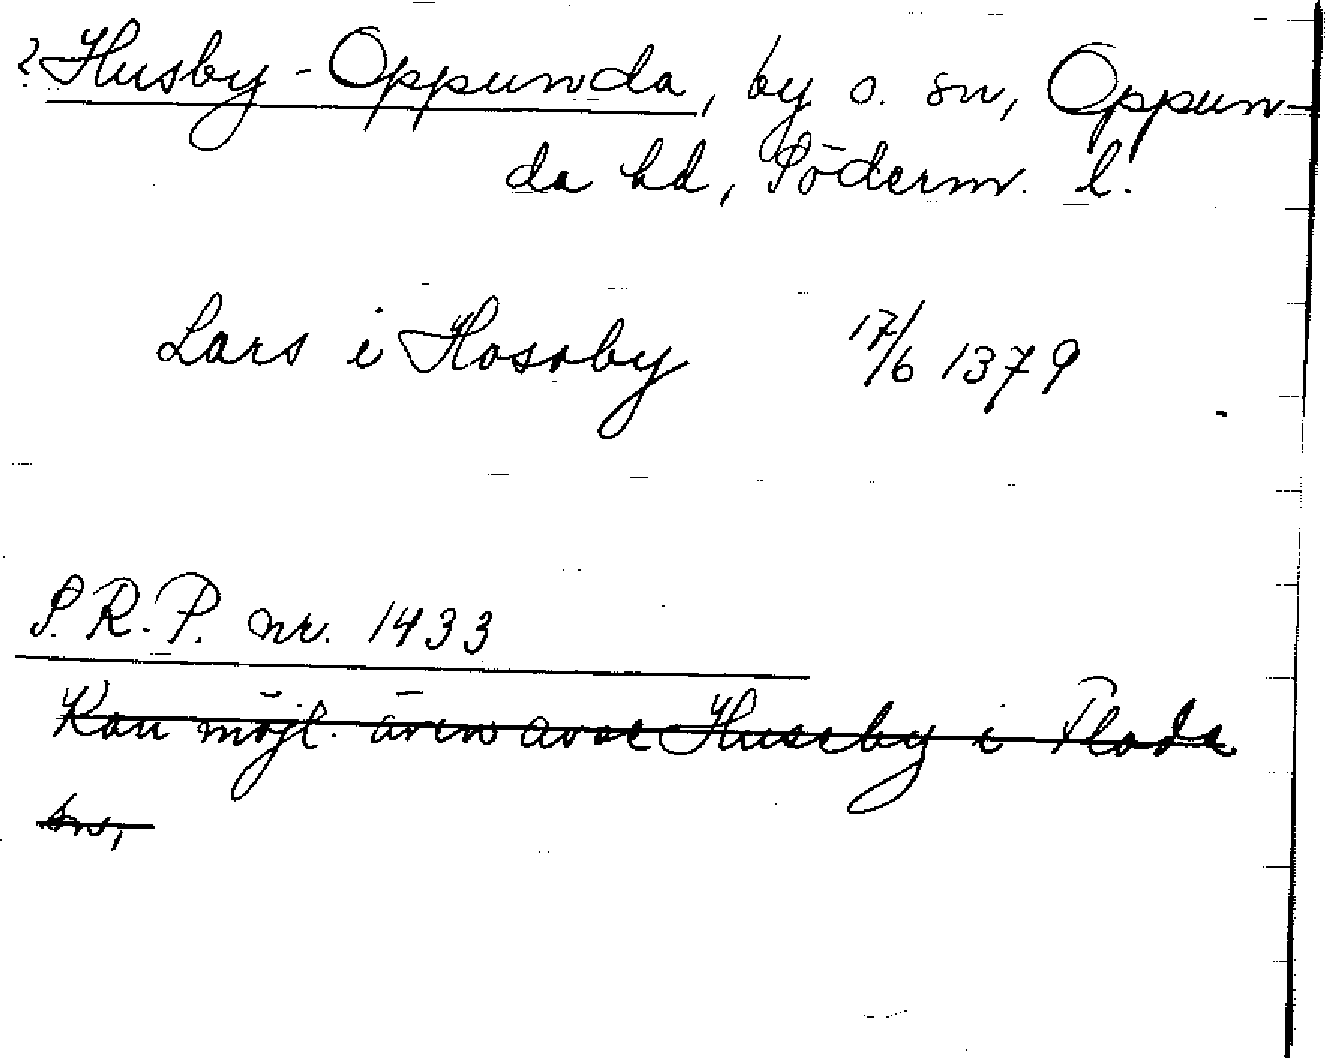 ? Husby-Oppunda, by o. sn, Oppun-
da hd, Söderm. l.
Lars i Hosaby 17/6 1379
S.R.P. nr. 1433
Kan möjl. även avse Huseby i Floda
sn,